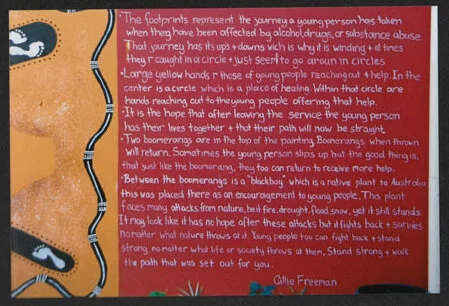 · The footprints represent the journey a young person has taken
when they have been affected by alcohol, drugs, or substance abuse.
That journey has its ups + downs wich is why it is winding + at times
they r caught in a circle + just seem to go aroun in circles
· Large yellow hands r those of young people reaching out + help. In the
center is a circle which is a place of healing. Within that circle are
hands reaching out to the young people offering that help.
· It is the hope that after leaving the service the young person
has their lives together + that their path will now be straight.
· Two boomerangs are in the top of the painting. Boomerangs when thrown
will return. Sometimes the young person slips up but the good thing is,
that just like the boomerang, they too can return to receive more help.
· Between the boomerangs is a "blackboy" which is a native plant to Australia
this was placed there as an encouragement to young people. This plant
faces many attacks from nature, be it fire, drought, flood, snow, yet it still stands.
It may look like it has no hope after these attacks but it fights back + survies
no matter what nature throws at it. Young people too can fight back + stand
strong no matter what life or society throws at them. Stand strong + walk
the path that was set out for you.
Gillie Freeman